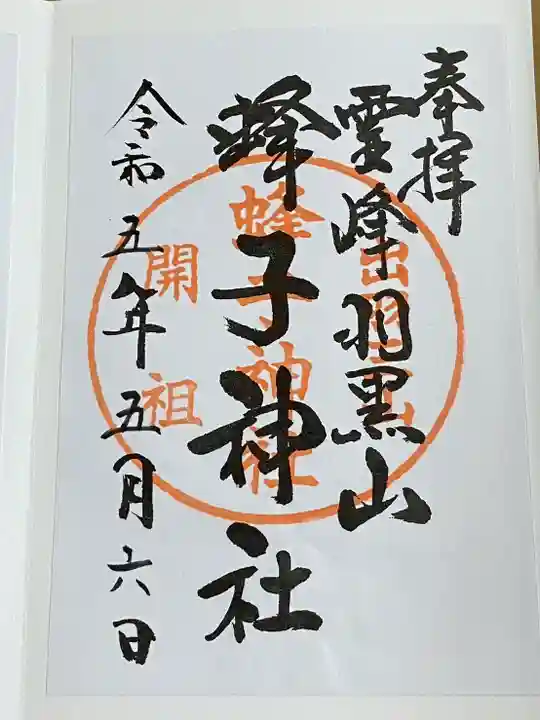 奉拝
霊峰羽黒山
蜂子神社
令和五年五月六日
出羽三山
蜂子神社
開祖